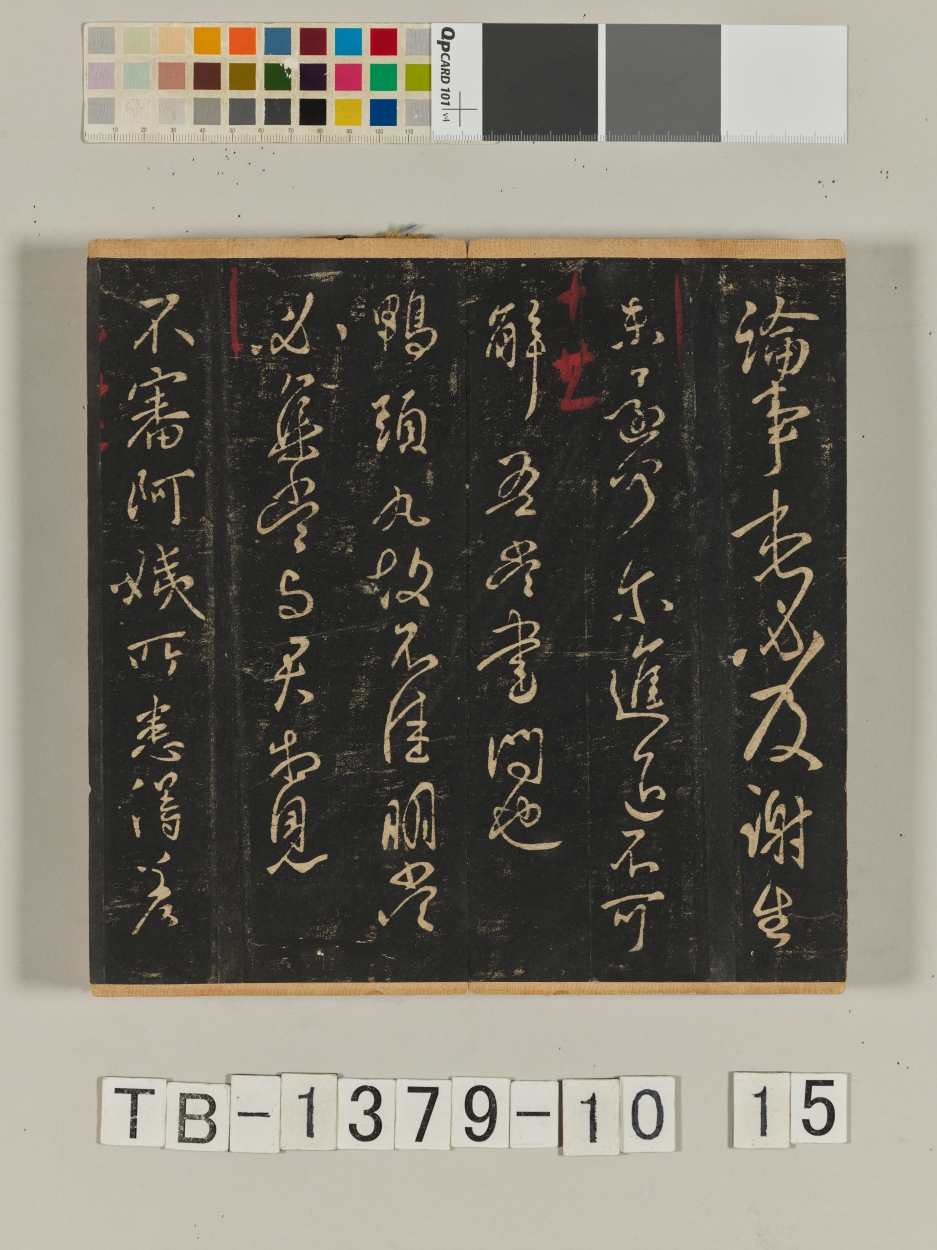 論事想必及謝生
東尔進退不可
解吾當書問也
鴨頭丸故不佳明當
必集當与君相見
不審阿姨所患得差
Qp CARD 101 v4
10 20 30 40 50 60 70 80 90 100 110
TB-1379-10 15